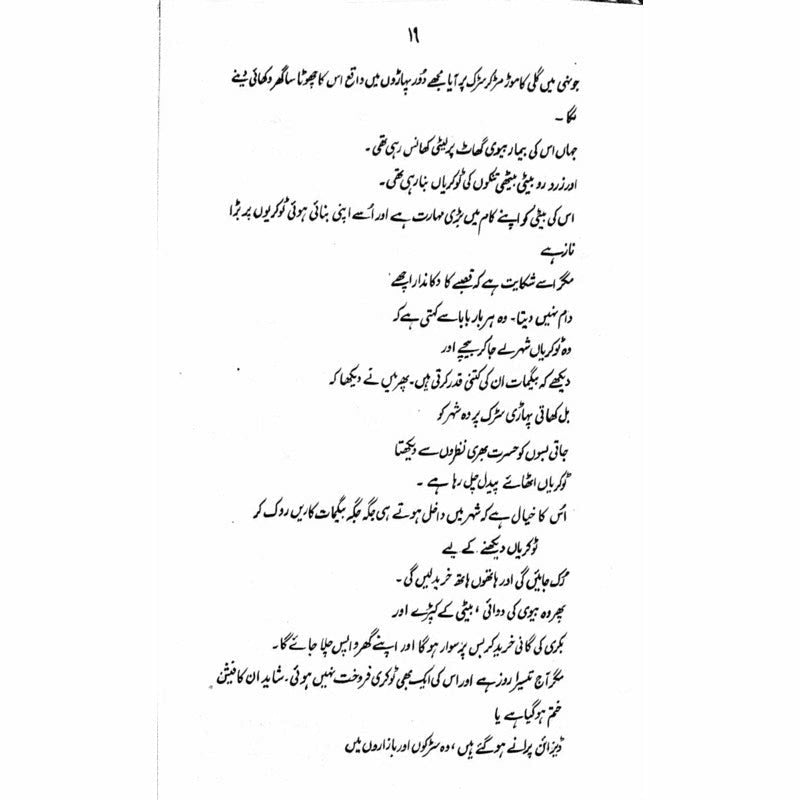 ۱۹
جونہی میں گلی کا موڑ مڑ کر سڑک پر آیا مجھے دُور پہاڑوں میں واقع اس کا چھوٹا سا گھر دکھائی دینے
لگا -
جہاں اس کی بیمار بیوی کھاٹ پر لیٹی کھانس رہی تھی -
اور زرد رو بیٹی بیٹھی تنکوں کی ٹوکریاں بنا رہی تھی -
اس کی بیٹی کو اپنے کام میں بڑی مہارت ہے اور اُسے اپنی بنائی ہوئی ٹوکریوں پر بڑا
ناز ہے
مگر اسے شکایت ہے کہ قصبے کا دکاندار اچھے
دام نہیں دیتا - وہ ہر بار بابا سے کہتی ہے کہ
وہ ٹوکریاں شہر لے جا کر بیچے اور
دیکھے کہ بیگمات ان کی کتنی قدر کرتی ہیں - پھر میں نے دیکھا کہ
بل کھاتی پہاڑی سڑک پر وہ شہر کو
جاتی بسوں کو حسرت بھری نظروں سے دیکھتا
ٹوکریاں اٹھائے پیدل چل رہا ہے -
اُس کا خیال ہے کہ شہر میں داخل ہوتے ہی جگہ جگہ بیگمات کاریں روک کر
ٹوکریاں دیکھنے کے لیے
رُک جائیں گی اور ہاتھوں ہاتھ خرید لیں گی -
پھر وہ بیوی کی دوائی ، بیٹی کے کپڑے اور
بکری کی گانی خرید کر بس پر سوار ہو گا اور اپنے گھر واپس چلا جائے گا -
مگر آج تیسرا روز ہے اور اس کی ایک بھی ٹوکری فروخت نہیں ہوئی - شاید ان کا فیشن
ختم ہو گیا ہے یا
ڈیزائن پرانے ہو گئے ہیں ، وہ سڑکوں اور بازاروں میں